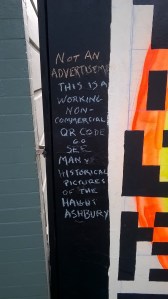 NOT AN
ADVERTISEM
THIS IS A
WORKING
NON-
COMMERCIAL
QR CODE
GO
SEE
MANY
HISTORICAL
PICTURES
OF THE
HAIGHT
ASHBURY